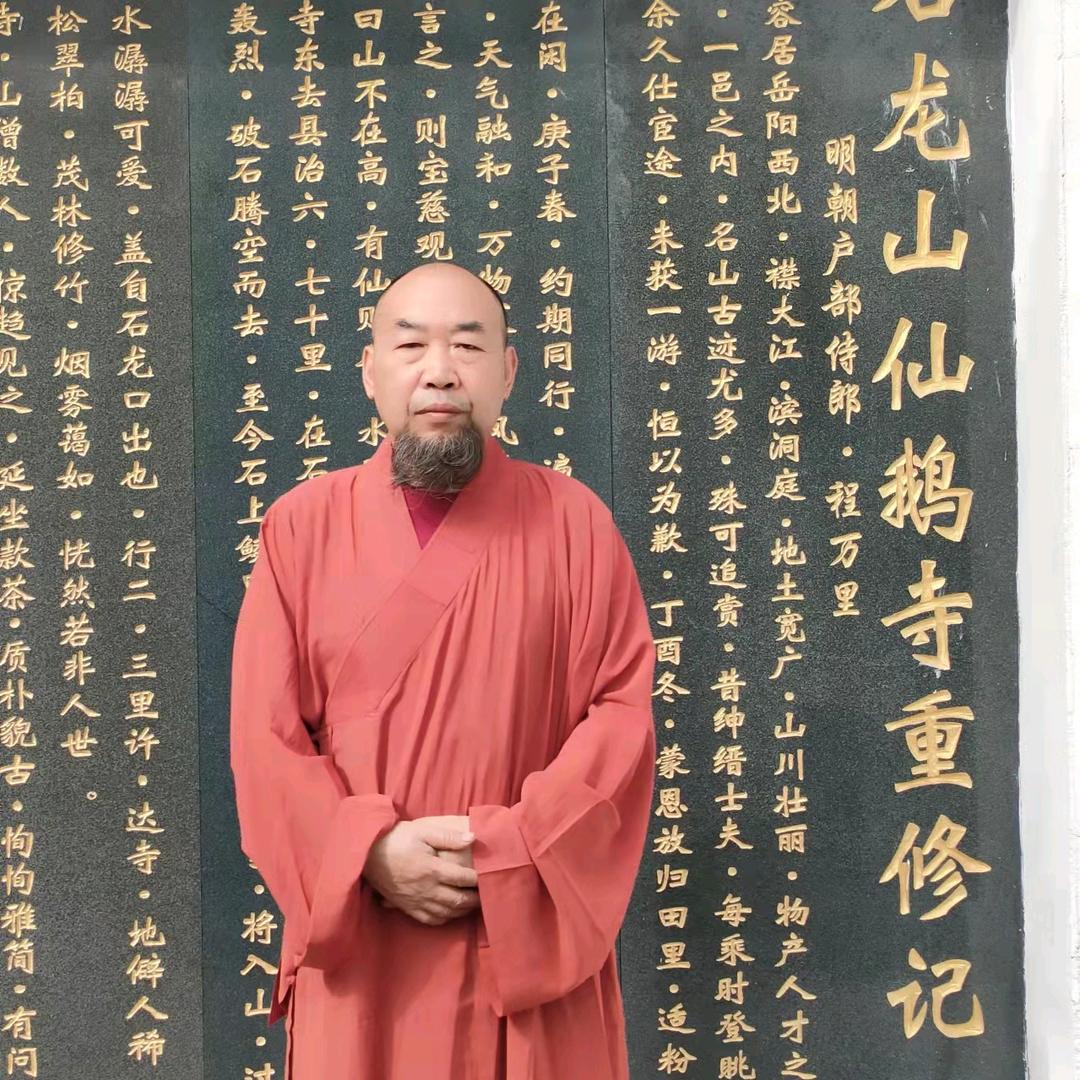 石龙山仙鹅寺重修记
明朝户部侍郎·程万里
容居岳阳西北·襟大江·滨洞庭·地土宽广·山川壮丽·物产人才之
·一邑之内·名山古迹尤多·殊可追赏·昔绅缙士夫·每乘时登眺
余久仕宦途·未获一游·恒以为歉·丁酉冬·蒙恩放归田里·适粉
在闲·庚子春·约期同行·
·天气融和·万物 风
言之·则宝慈观
曰山不在高·有仙则 水
寺东去县治六·七十里·在石
轰烈·破石腾空而去·至今石上 ·将入山·过
水潺潺可爱·盖自石龙口出也·行二·三里许·达寺·地僻人稀
松翠柏·茂林修竹·烟雾蔼如·恍然若非人世。
寺·山僧数人·惊趋见之·延坐款茶·质朴貌古·恂恂雅简·有问